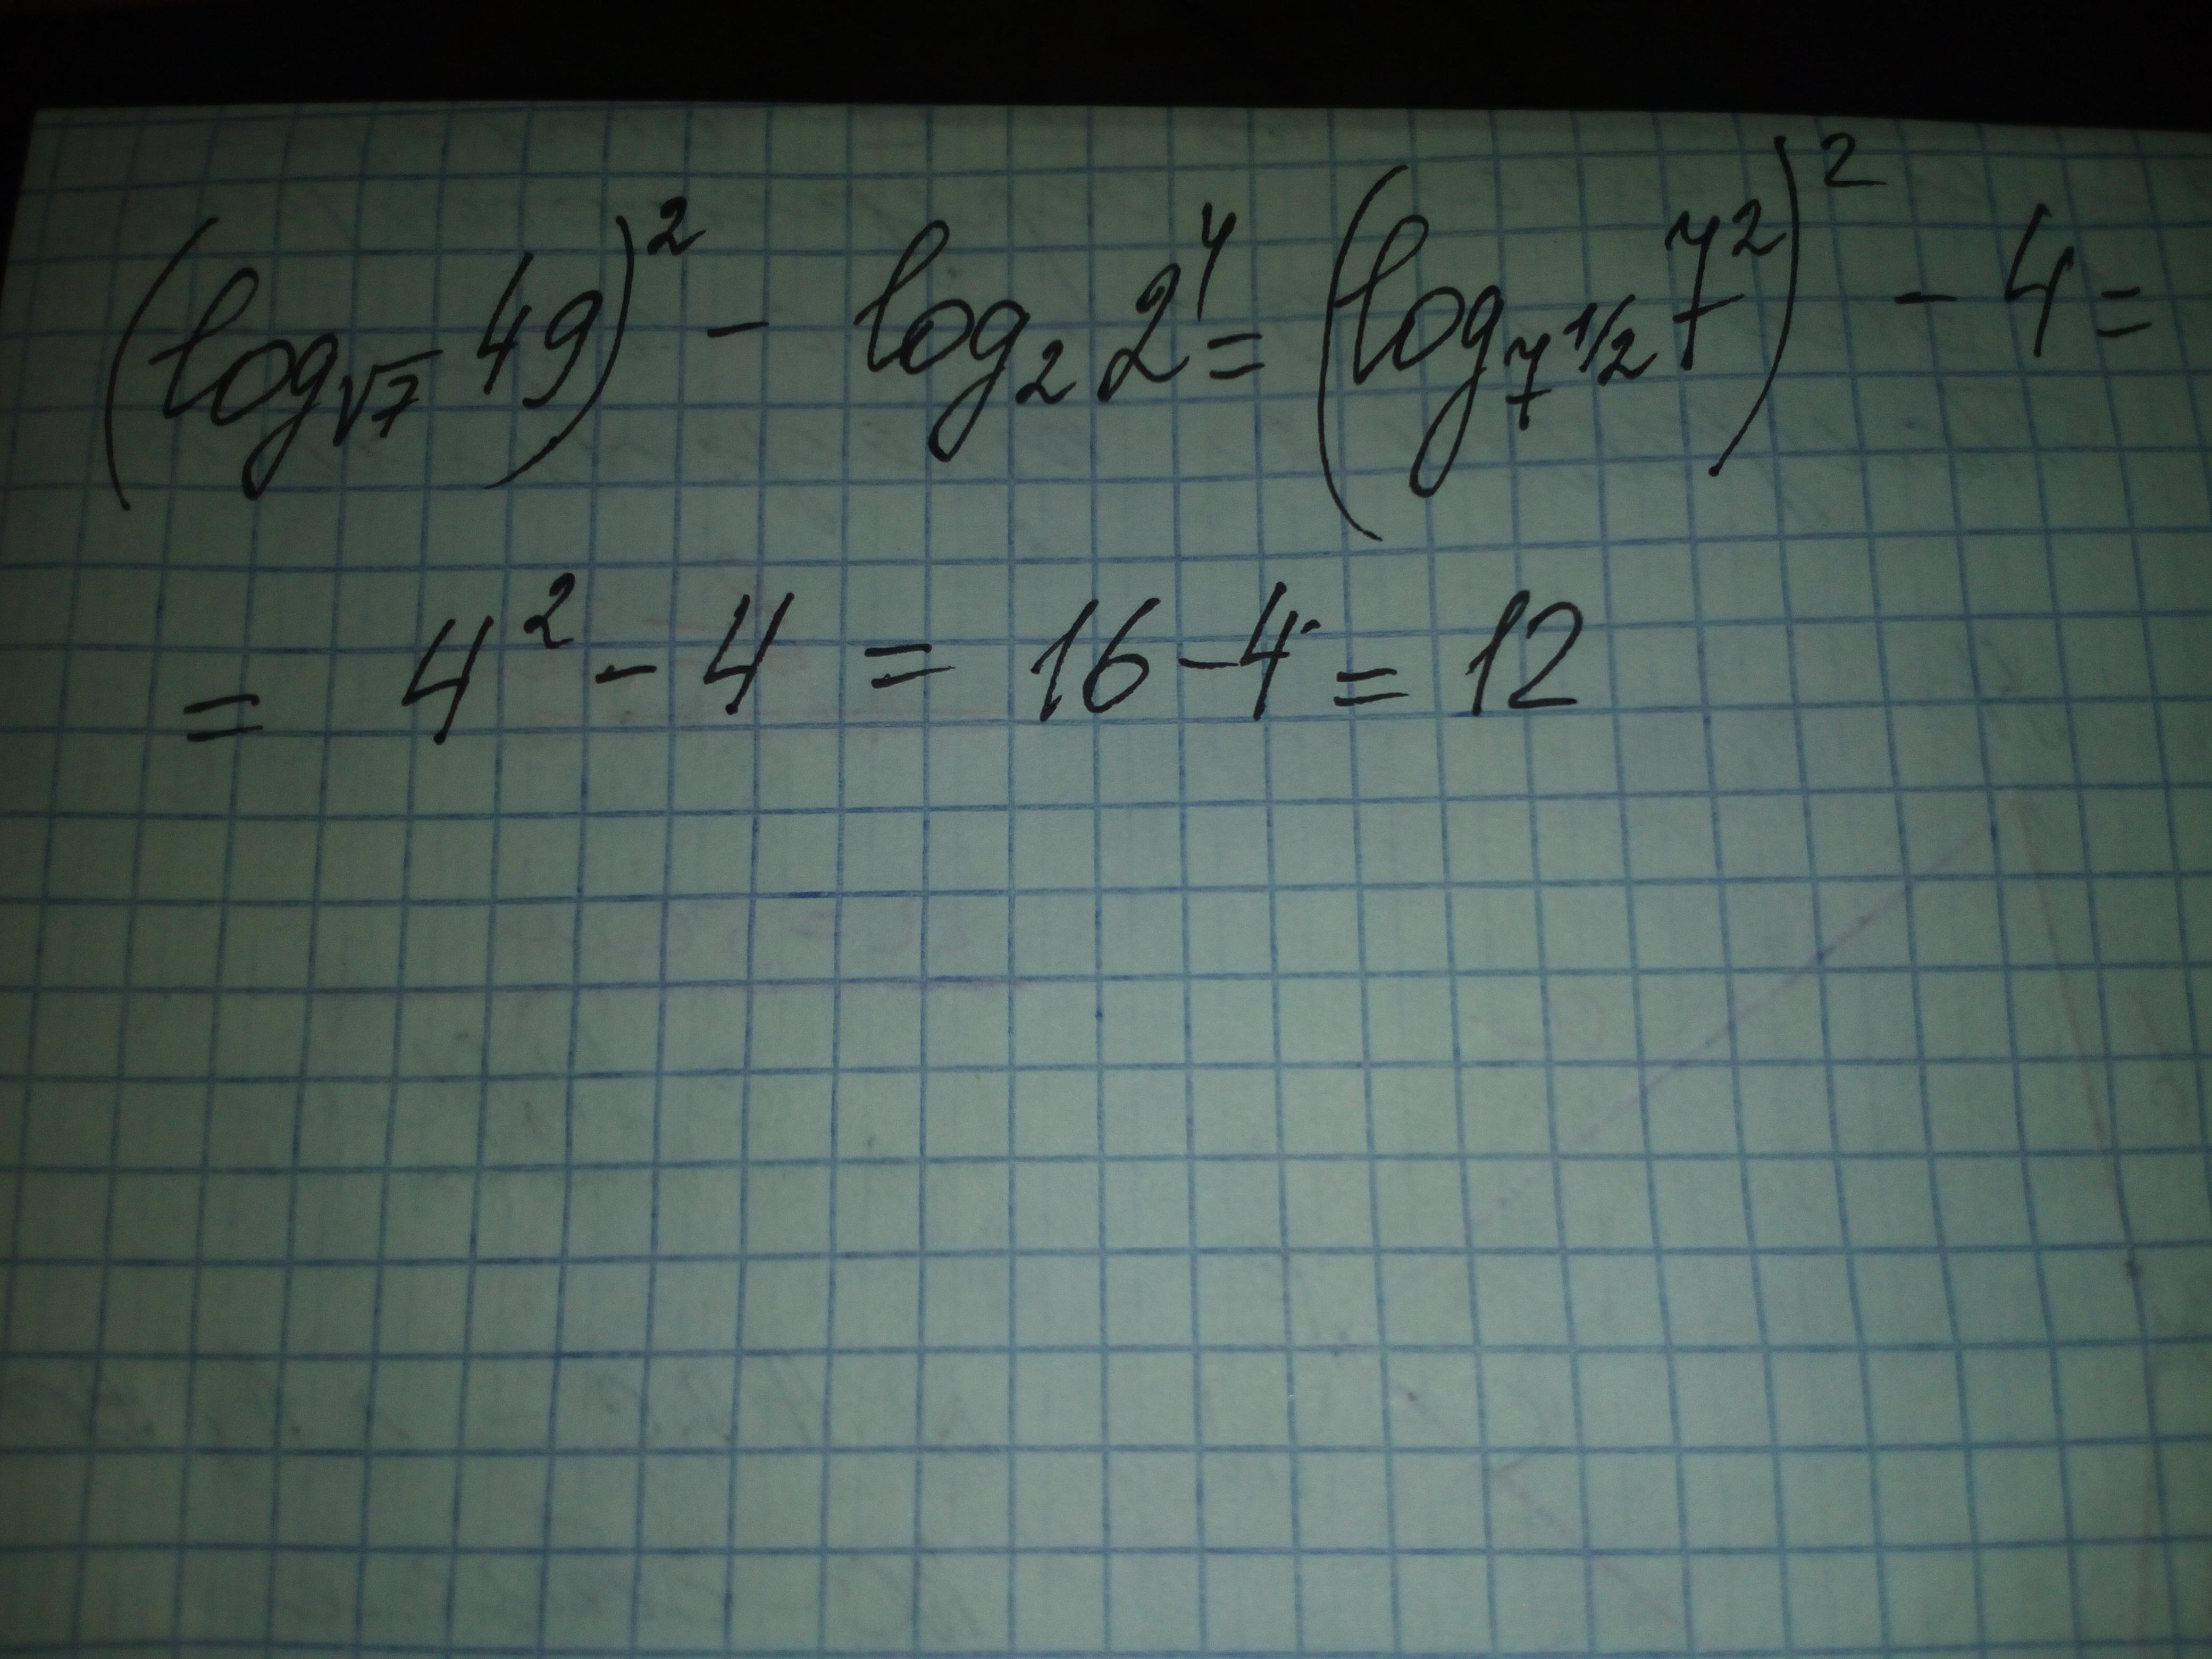 (log_{√7} 49)^2 - log_2 2^4 = (log_{7^{1/2}} 7^2)^2 - 4 =
= 4^2 - 4 = 16 - 4 = 12